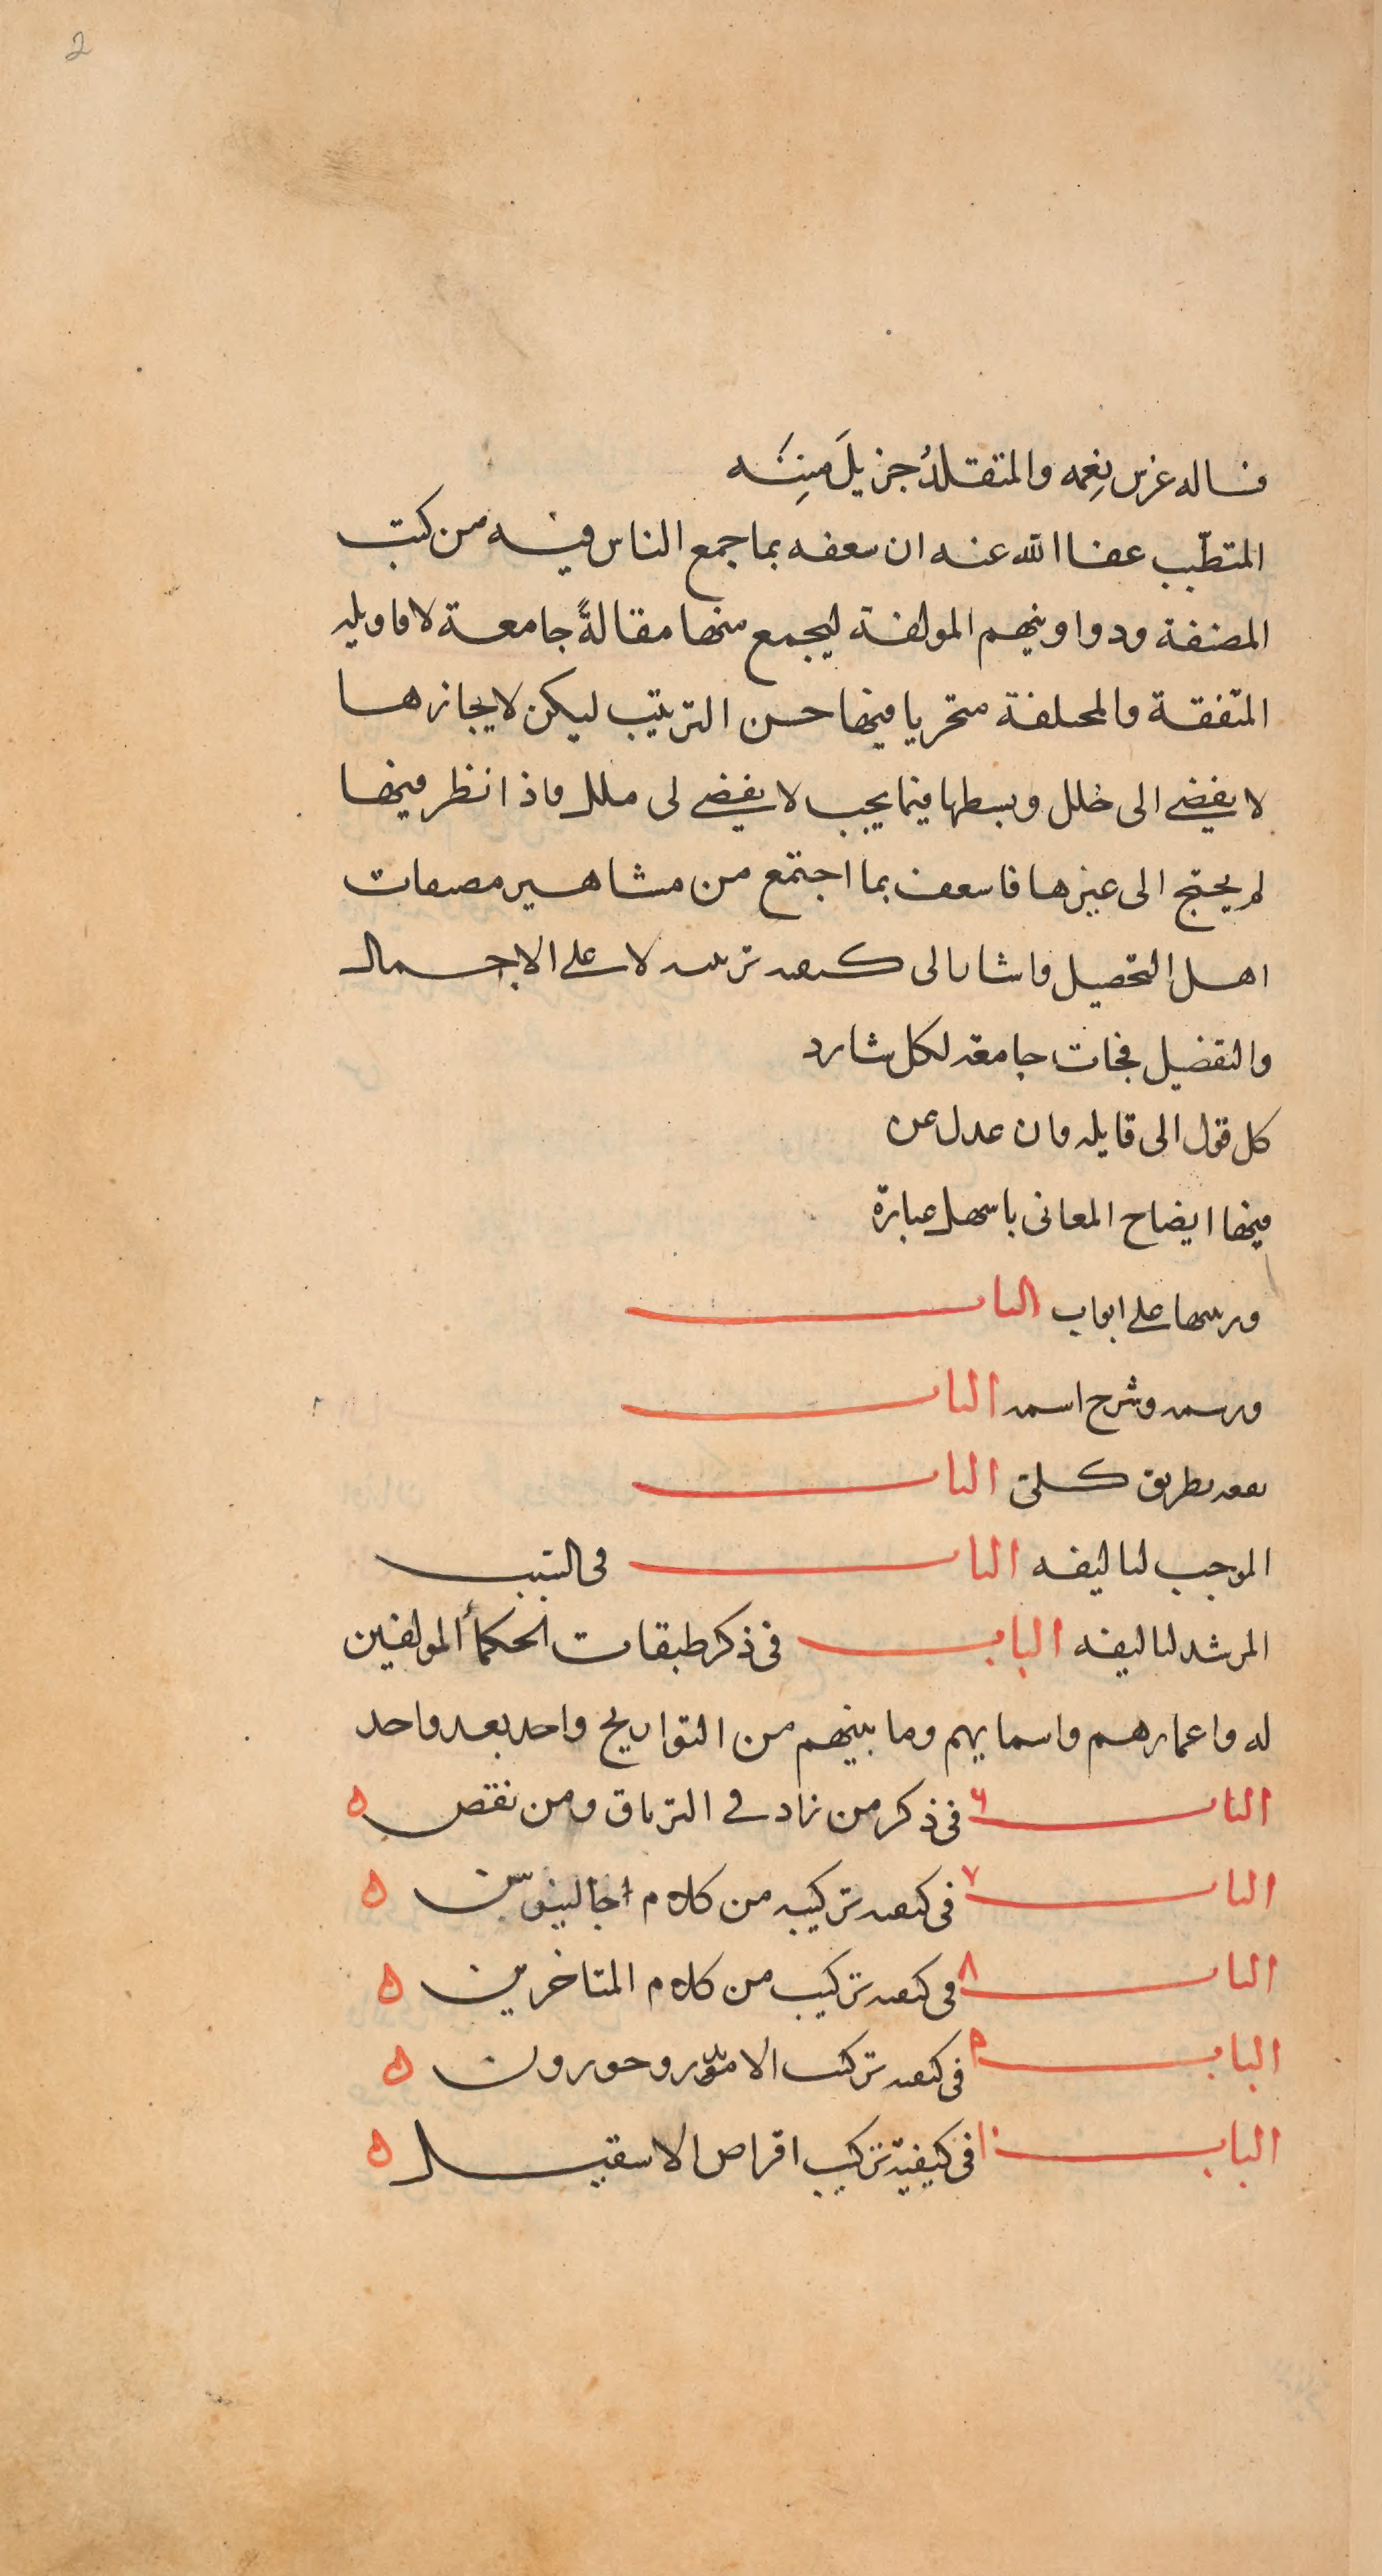 2
فساله غرس نِعمه والمتقلدُ جزيلَ مِنَنه
المتطبّب عفا الله عنه ان سعفه بما جمع الناس فيه من كتب
المصنفة ودواوينهم المولفة ليجمع منها مقالةً جامعة لاقاويله
المتفقة والمختلفة متحريا فيها حسن الترتيب ليكن لايجازها
لا يفضى الى خلل وبسطها فيما يجب لا يفضى لى ملل فاذا نظر فيها
لم يحتج الى غيرها فاسعف بما اجتمع من مشاهير مصنفات
اهل التحصيل واشار الى كيفيه ترتيبه لا على الاجمال
والتفضيل فجات جامعة لكل شارد
كل قول الى قايله وان عدل عن
فيها ايضاح المعانى باسهل عبارة
ورسمها على ابواب الباب
ورسمه وشرح اسمه الباب
نفعه بطريق كلى الباب
الموجب لتاليفه الباب فى السبب
المرشد لتاليفه الباب فى ذكر طبقات الحكمأ المولفين
له واعمارهم واسمايهم وما بينهم من التواريخ واحد بعد واحد
الباب ٦ فى ذكر من زاد فى الترياق ومن نقص ه
الباب ٧ فى كيفيه تركيبه من كلام اجالينوس ه
الباب ٨ فى كيفيه تركيب من كلام المتاخرين ه
الباب ٩ فى كيفيه تركيب الاندروحورون ه
الباب ١٠ فى كيفية تركيب اقراص الاسقيل ه